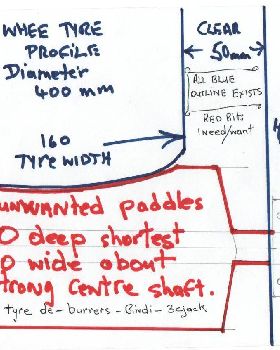 WHEE TYRE
PROFILE
Diameter
400 mm
160
TYRE WIDTH
CLEAR
50mm
ALL BLUE
OUTLINE EXISTS
RED Bits
I need/want
unwanted paddles
O deep shortest
P wide about
trong centre shaft.
tyre de-burrers - Bindi - 3cjack